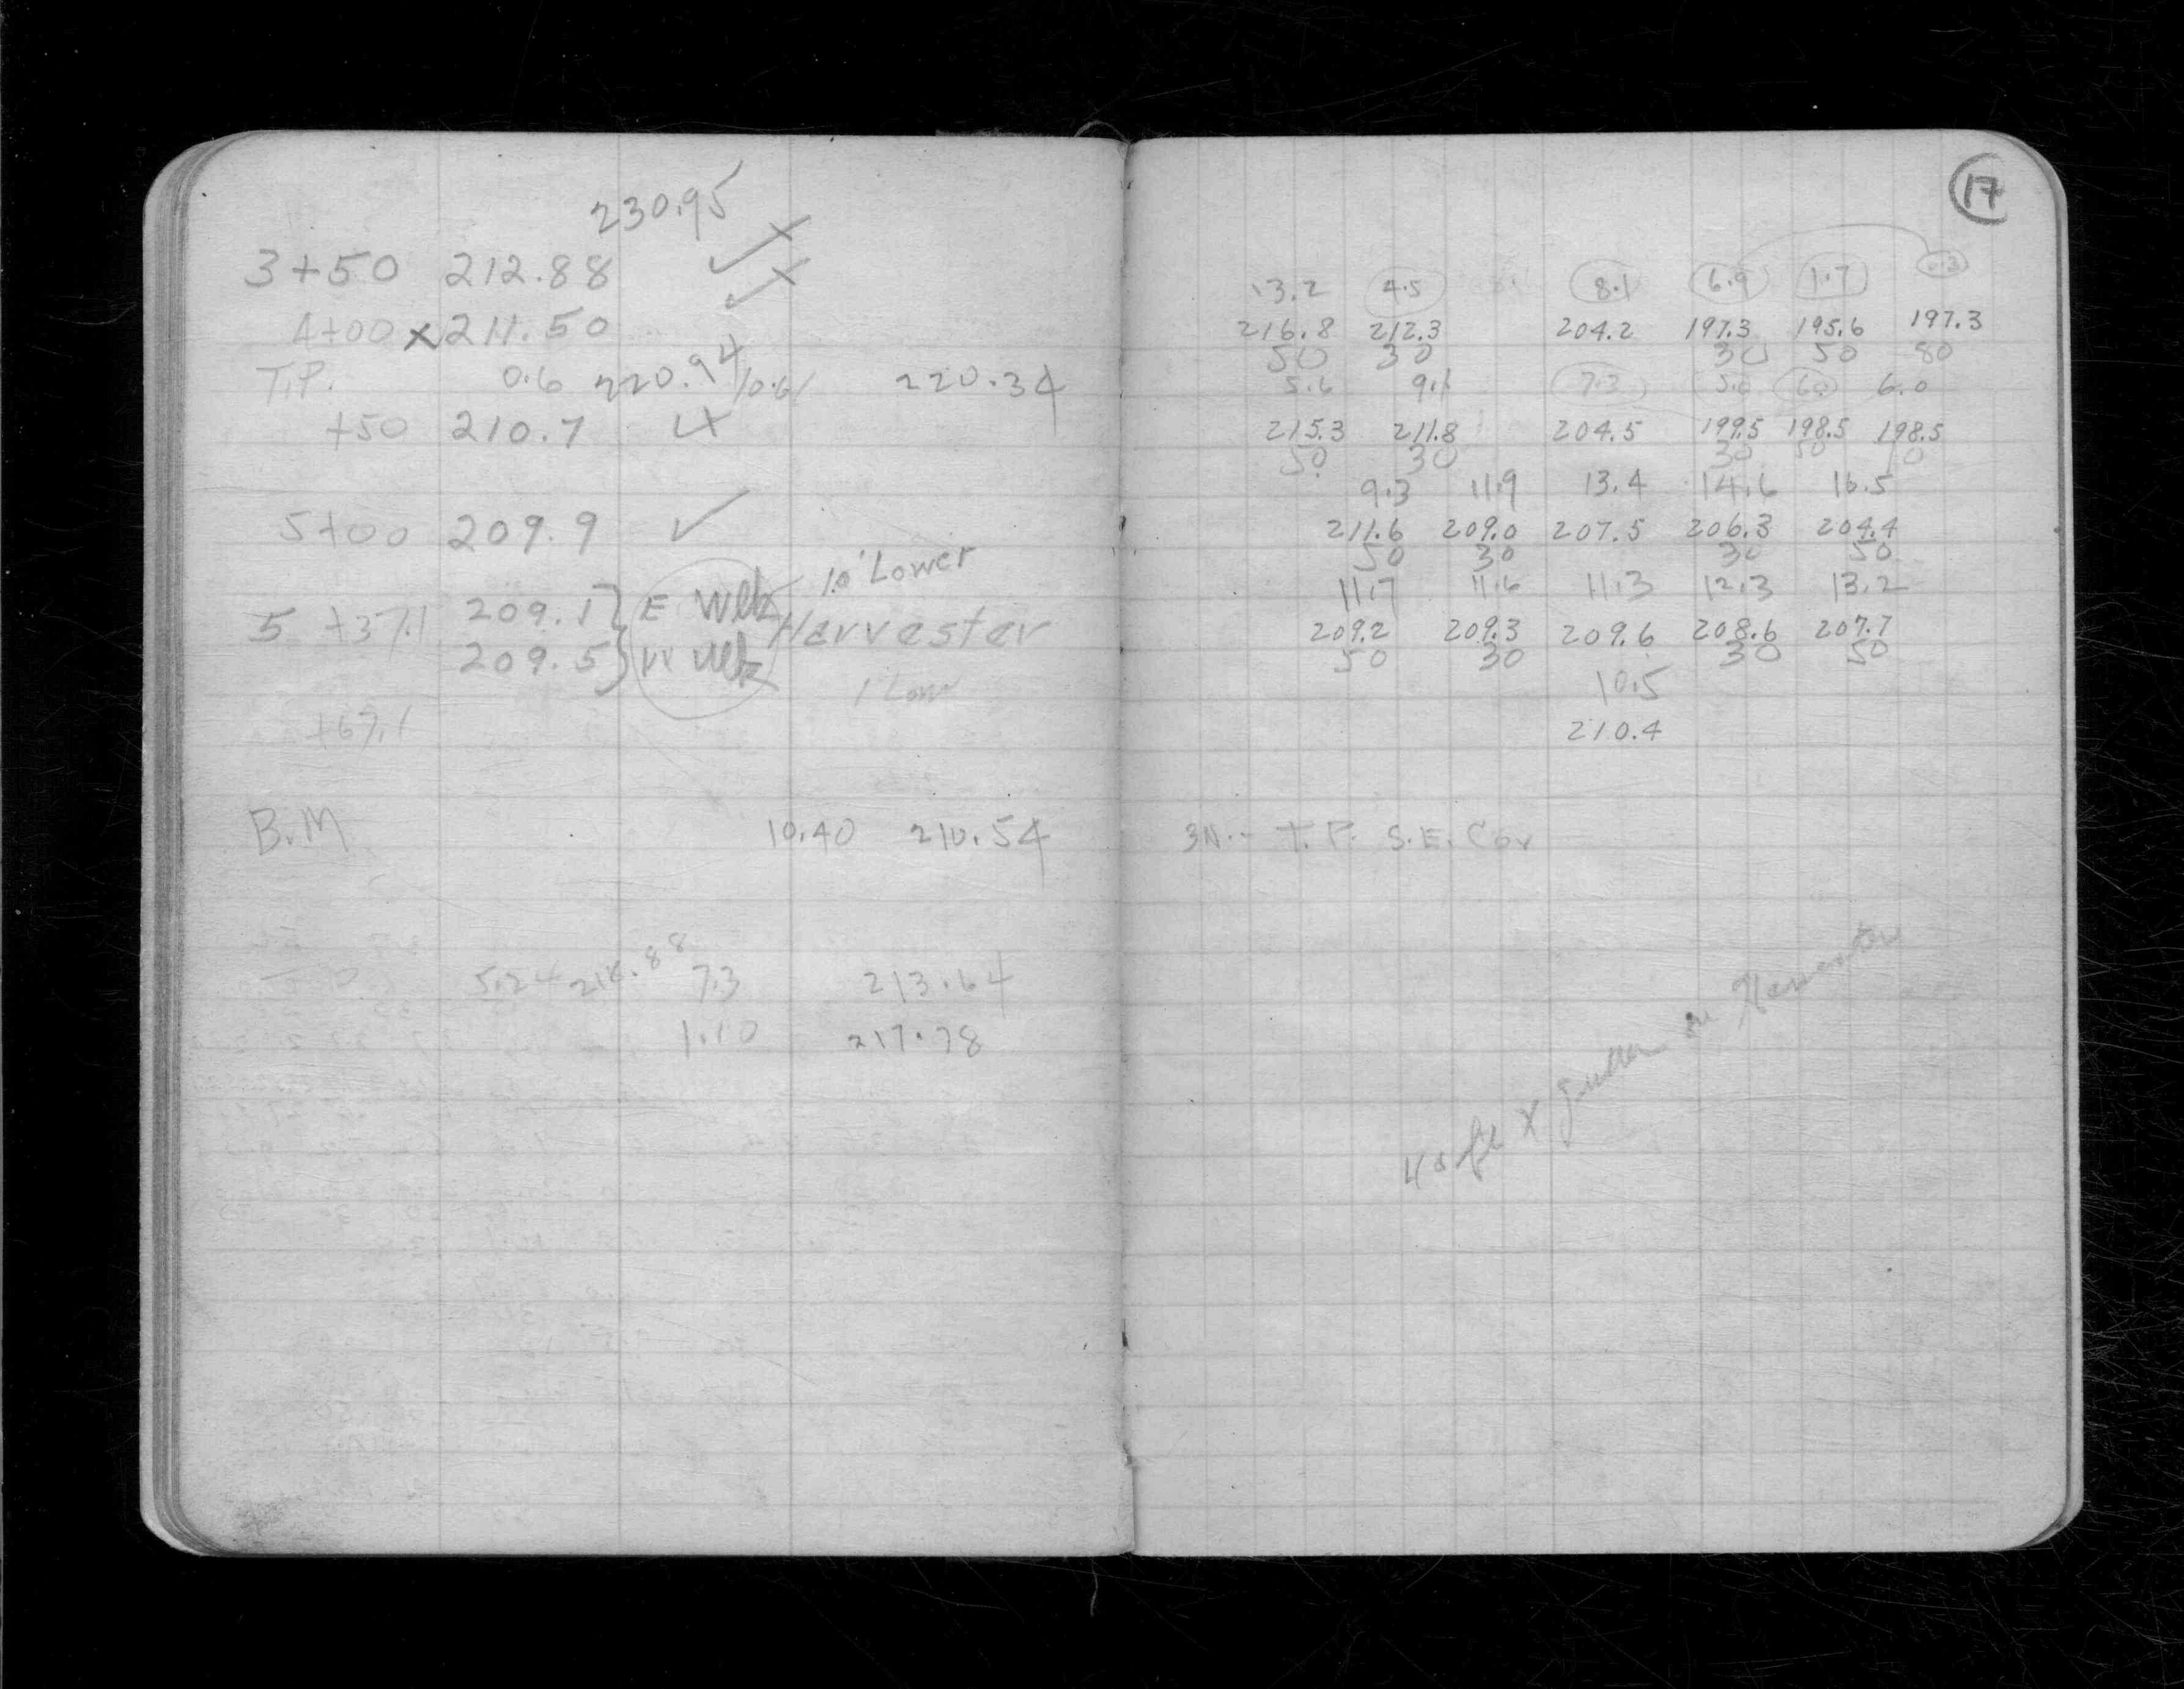 230.95
3+50 212.88
4+00 x 211.50
T.P. 0.6 220.94 10.61 220.34
+50 210.7
5+00 209.9
1.0' Lower
5 +37.1 209.1 } E Walk Harvester
209.5 } W Walk
1' Low
+67.1
B.M 10.40 210.54
5.24 218.88 7.3 213.64
1.10 217.78
17
13.2 4.5 8.1 6.9 1.7
216.8 212.3 204.2 197.3 195.6 197.3
50 30 30 50 80
5.6 9.1 7.3 5.0 6.0 6.0
215.3 211.8 204.5 199.5 198.5 198.5
50 30 30 50
9.3 11.9 13.4 14.6 16.5
211.6 209.0 207.5 206.3 204.4
50 30 30 50
11.7 11.6 11.3 12.3 13.2
209.2 209.3 209.6 208.6 207.7
50 30 30 50
10.5
210.4
3N.- T.P. S.E. Cor
X gutter on Harvester